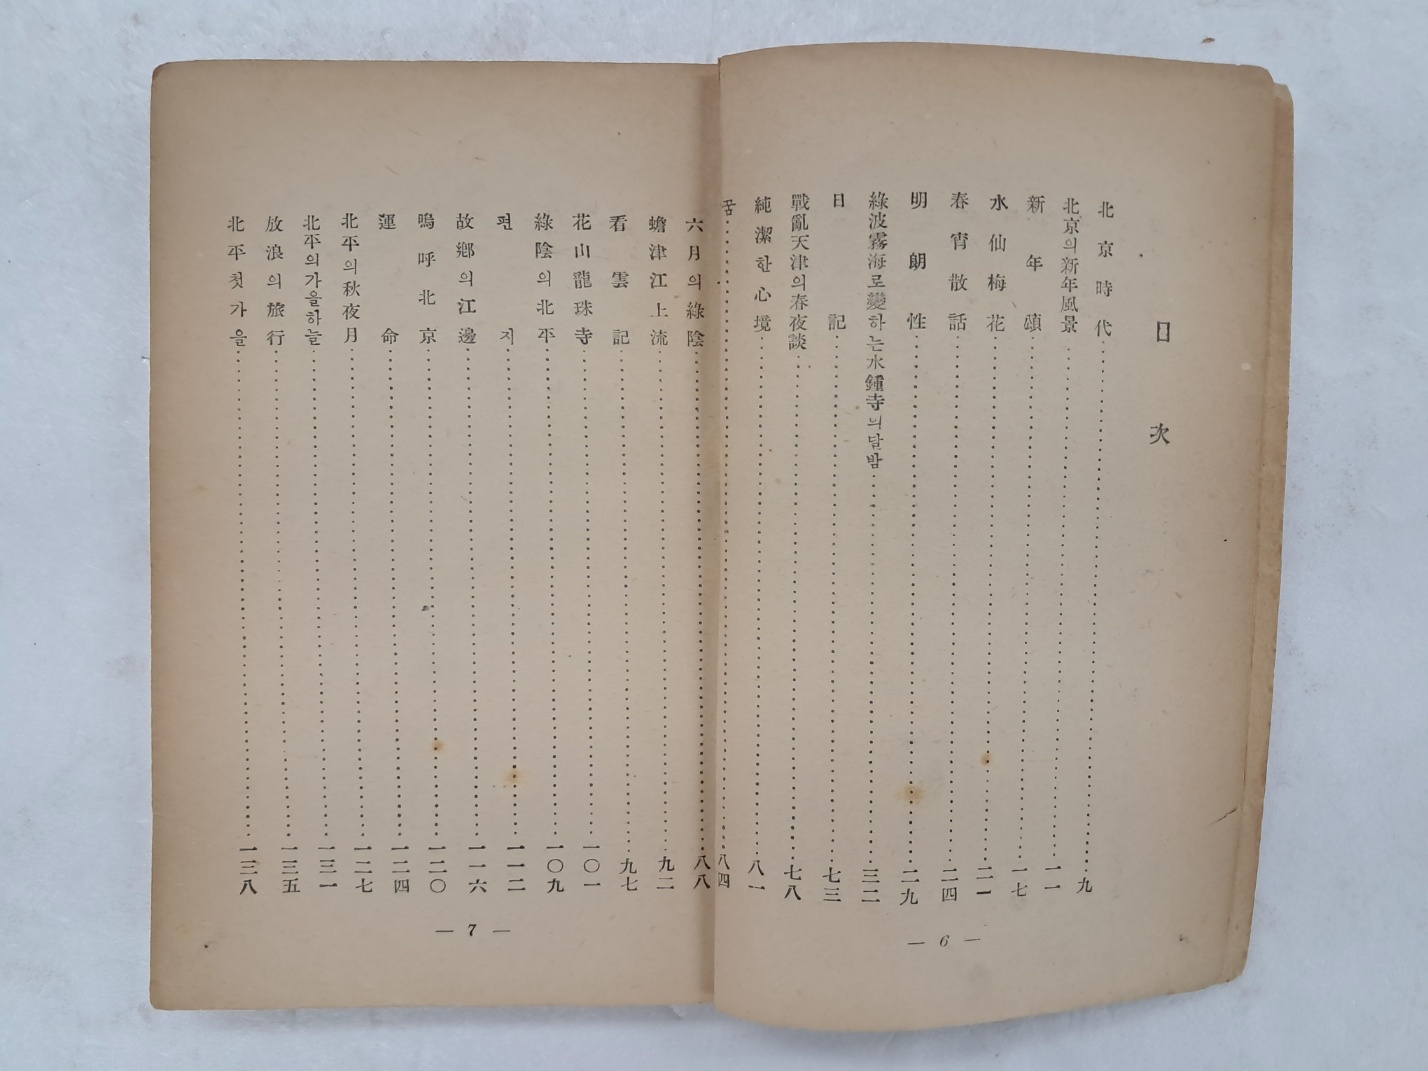 目次
北京時代 九
北京의新年風景 一一
新年頌 一七
水仙梅花 二一
春宵散話 二四
明朗性 二九
綠波霧海로變하는水鍾寺의달밤 三二
日記 七三
戰亂天津의春夜談 七八
純潔한心境 八一
꿈 八四
— 6 —
六月의綠陰 八八
蟾津江上流 九二
看雲記 九七
花山龍珠寺 一〇一
綠陰의北平 一〇九
편지 一一二
故鄕의江邊 一一六
嗚呼北京 一二〇
運命 一二四
北平의秋夜月 一二七
北平의가을하늘 一三一
放浪의旅行 一三五
北平첫가을 一三八
— 7 —